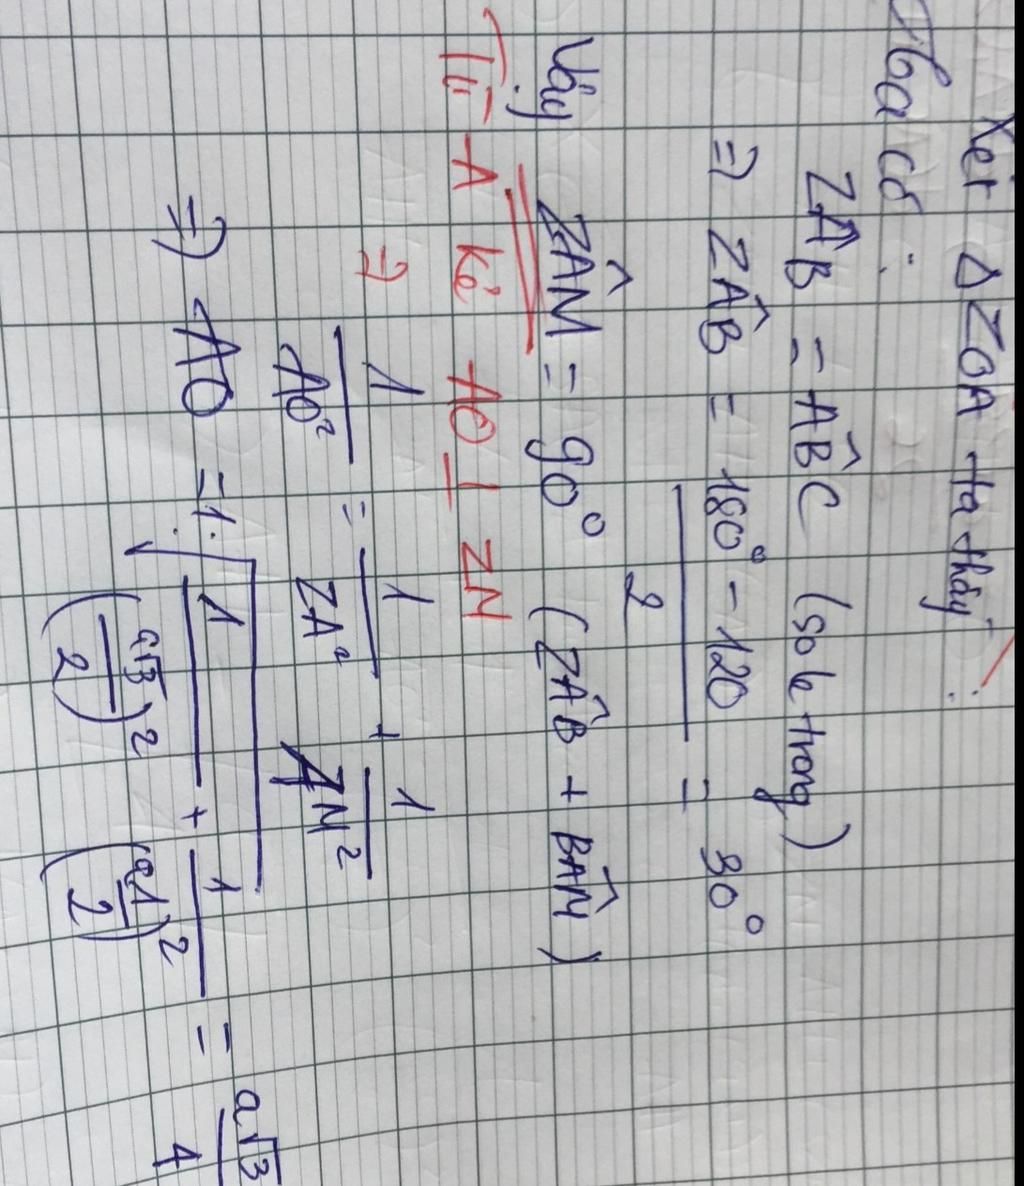 Xét Δ ZOA ta thấy :
Ta có :
ZÂB = AB̂C (so le trong)
=> ZÂB = 180° - 120 / 2 = 30°
Vậy ZÂM = 90° (ZÂB + BÂM)
Từ A kẻ AO ⊥ ZM
=> 1/AO² = 1/ZA² + 1/AM²
=> AO = 1 : √ 1/(a√3/2)² + 1/(a1/2)² = a√3/4